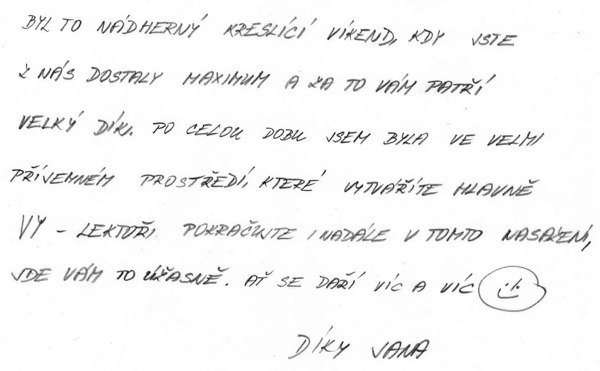 BYL TO NÁDHERNÝ KRESLÍCÍ VÍKEND, KDY JSTE
Z NÁS DOSTALY MAXIMUM A ZA TO VÁM PATŘÍ
VELKÝ DÍK. PO CELOU DOBU JSEM BYLA VE VELMI
PŘÍJEMNÉM PROSTŘEDÍ, KTERÉ VYTVÁŘÍTE HLAVNĚ
VY - LEKTOŘI. POKRAČUJTE I NADÁLE V TOMTO NASAZENÍ,
JDE VÁM TO ÚŽASNĚ. AŤ SE DAŘÍ VÍC A VÍC
DÍKY JANA